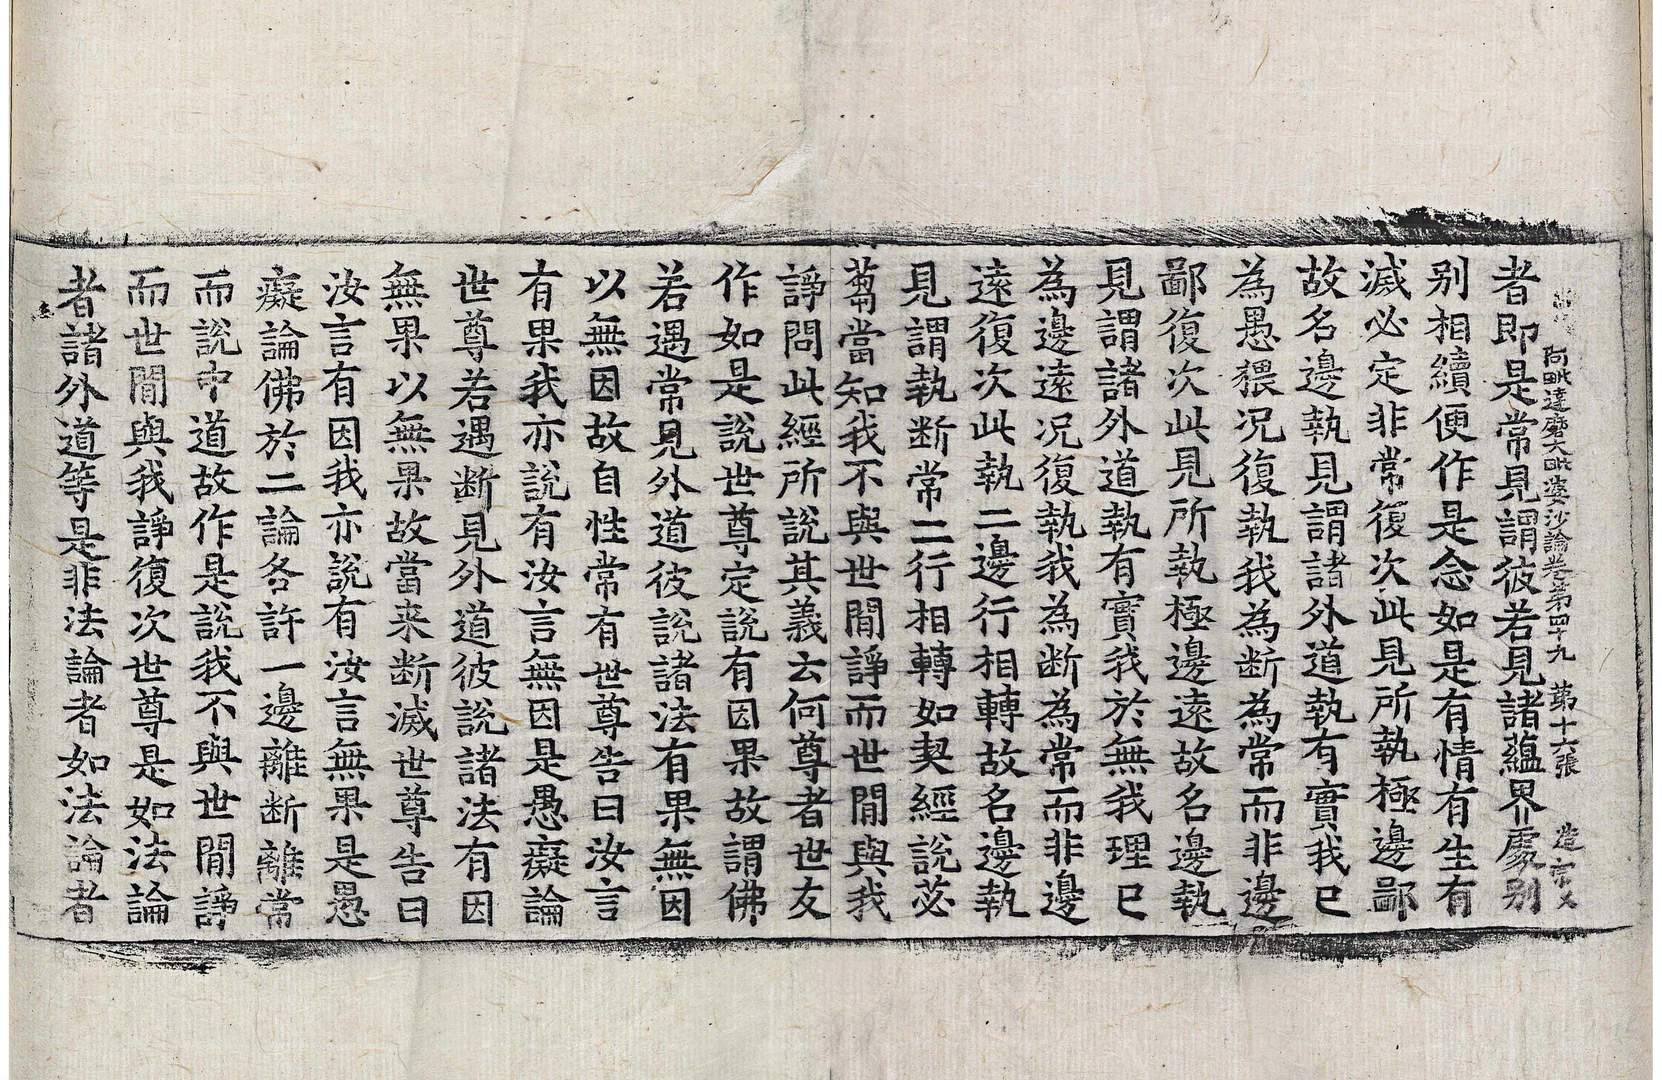 阿毗達磨大毗婆沙論卷第四十九　第十六張
者即是常見謂彼若見諸蘊界處别
别相續便作是念如是有情有生有
滅必定非常復次此見所執極邊鄙
故名邊執見謂諸外道執有實我已
為愚猥况復執我為断為常而非邊
鄙復次此見所執極邊遠故名邊執
見謂諸外道執有實我於無我理已
為邊遠况復執我為断為常而非邊
遠復次此執二邊行相轉故名邊執
見謂執断常二行相轉如契經說苾
蒭當知我不與世間諍而世間與我
諍問此經所說其義云何尊者世友
作如是說世尊定說有因果故謂佛
若遇常見外道彼說諸法有果無因
以無因故自性常有世尊告曰汝言
有果我亦說有汝言無因是愚癡論
世尊若遇断見外道彼說諸法有因
無果以無果故當来断滅世尊告曰
汝言有因我亦說有汝言無果是愚
癡論佛於二論各許一邊離断離常
而說中道故作是說我不與世間諍
而世間與我諍復次世尊是如法論
者諸外道等是非法論者如法論者